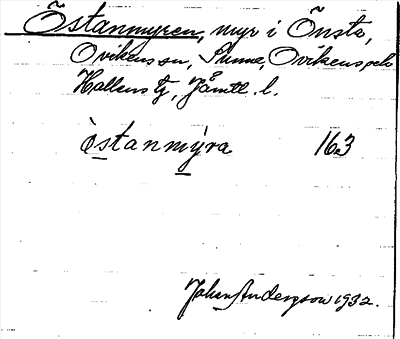 Östanmyren, myr i Önsta,
Ovikens sn, Sunne, Ovikens o
Hallens tg, Jämtl. l.
östanmýra 163
Johan Anderson 1932.